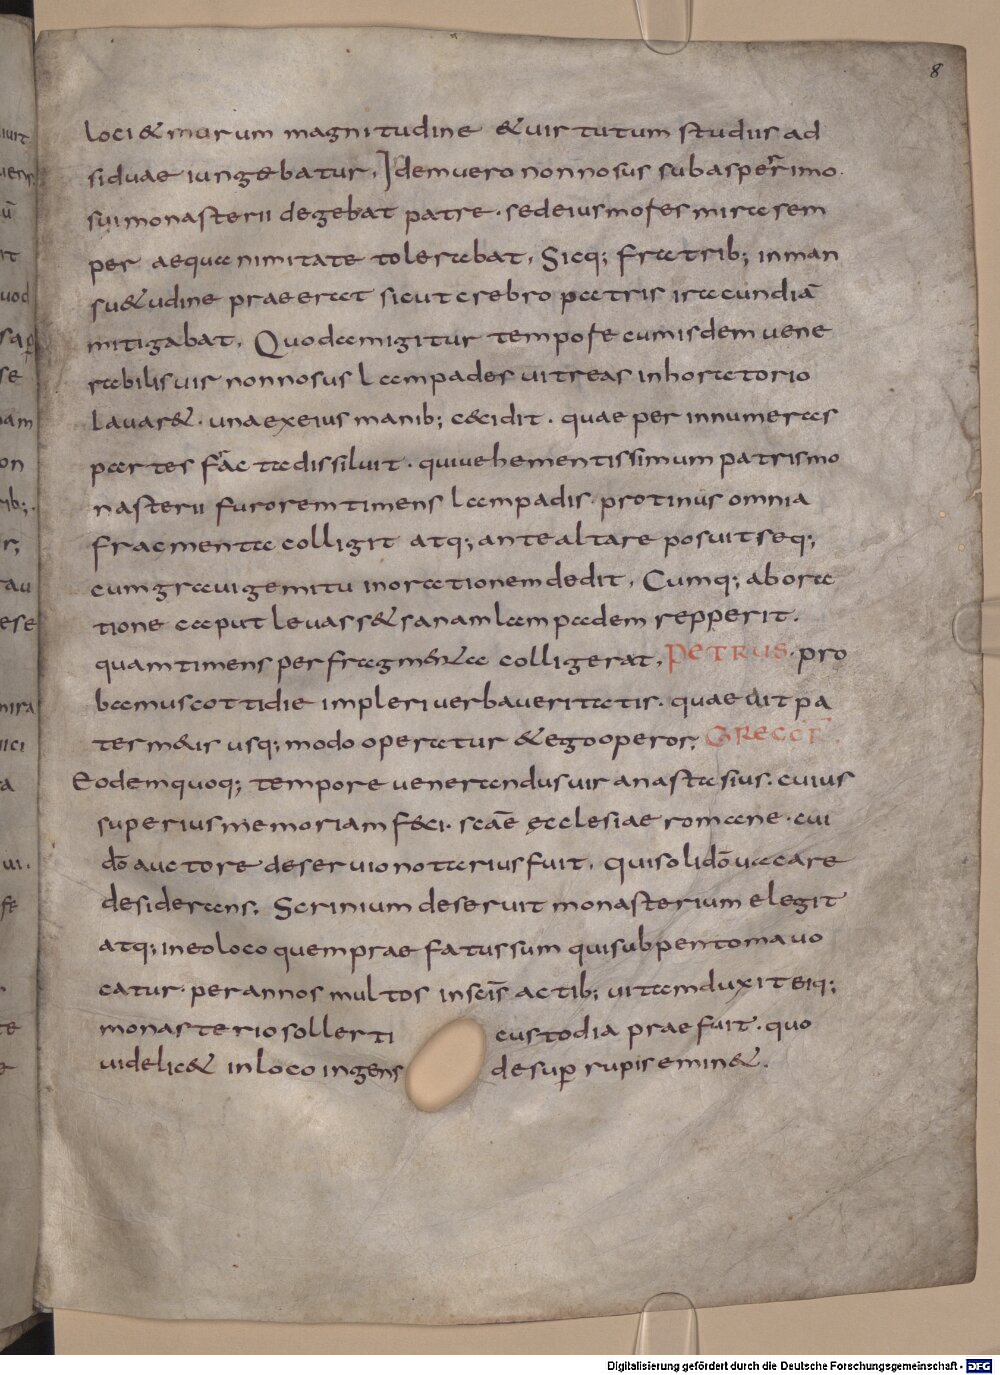 8
loci & morum magnitudine & uirtutum studiis ad
siduae iungebatur, Idem uero nonnosus sub asperrimo.
sui monasterii degebat patre. sed eius mores mira sem
per aequanimitate tolerabat, Sicq; fratrib; in man
su&udine praeerat sicut crebro patris iracundiā
mitigabat, Quodam igitur tempore cum isdem uene
rabilis uir nonnosus lampades uitreas in horatorio
lauar&. una ex eius manib; cecidit. quae per innumeras
partes frācta dissiluit. qui uehementissimum patris mo
nasterii furorem timens lampadis. protinus omnia
fracmenta colligit atq; ante altare posuit seq;,
cum graui gemitu in orationem dedit, Cumq; ab ora
tione caput leuass& sanam lampadem repperit.
quam timens per fragm&nta colligerat, PETRUS. pro
bamus cottidie impleri uerba ueritatis. quae ait pa
ter meus usq; modo operatur & ego operor; GREGOR̄
Eodem quoq; tempore uenerandus uir anastasius. cuius
superius memoriam feci. scāe ęcclesiae romane. cui
dō auctore deseruio notarius fuit, qui soli dō uacare
desiderans, Scrinium deseruit monasterium elegit
atq; in eo loco quem praefatus sum qui subpentoma uo
catur. per annos multos in scīs actib; uitam duxit eiq;
monasterio sollerti custodia praefuit. quo
uidelic& in loco ingens desup rupis emin&.
Digitalisierung gefördert durch die Deutsche Forschungsgemeinschaft - DFG